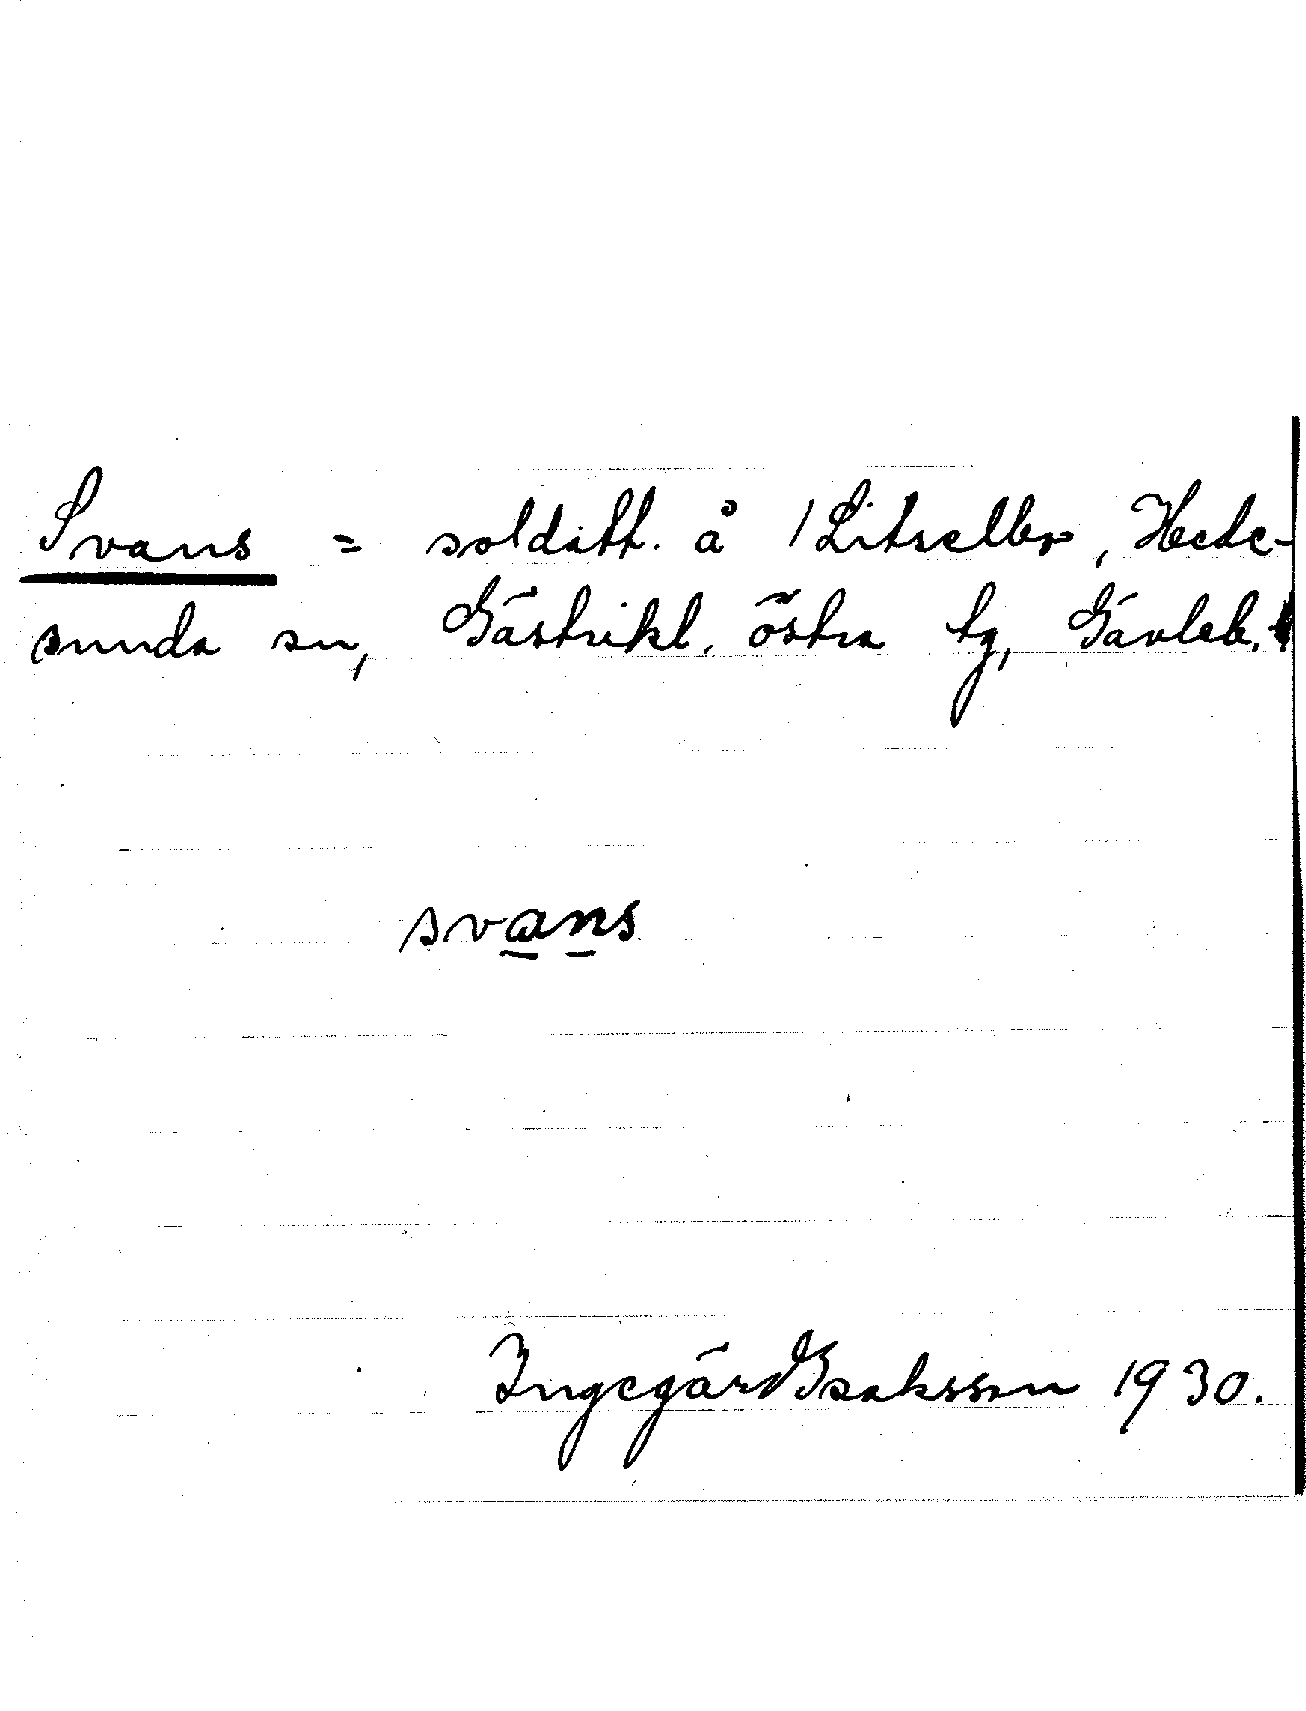 Svans = soldatt. å 1 Litselbo, Hede-
sunda sn, Gästrikl. östra tg, Gävleb.
svans
Ingegärd Isaksson 1930.